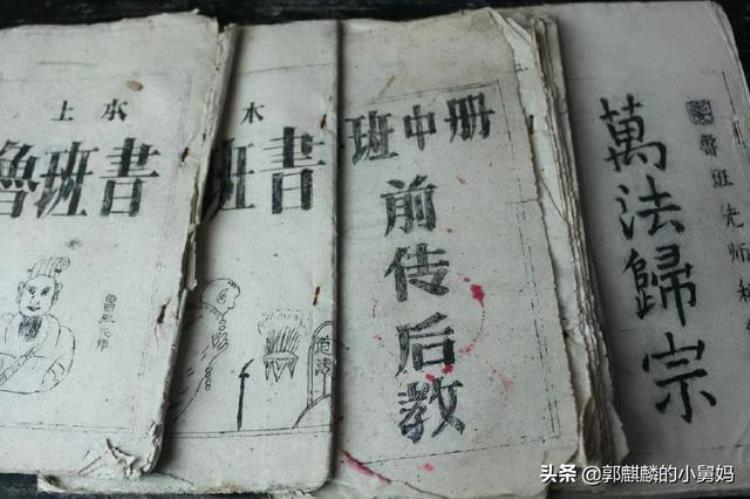 上本
魯班書
本
班書
道法
班中册
前传后教
萬法歸宗
魯班先师
头条 @郭麒麟的小舅妈